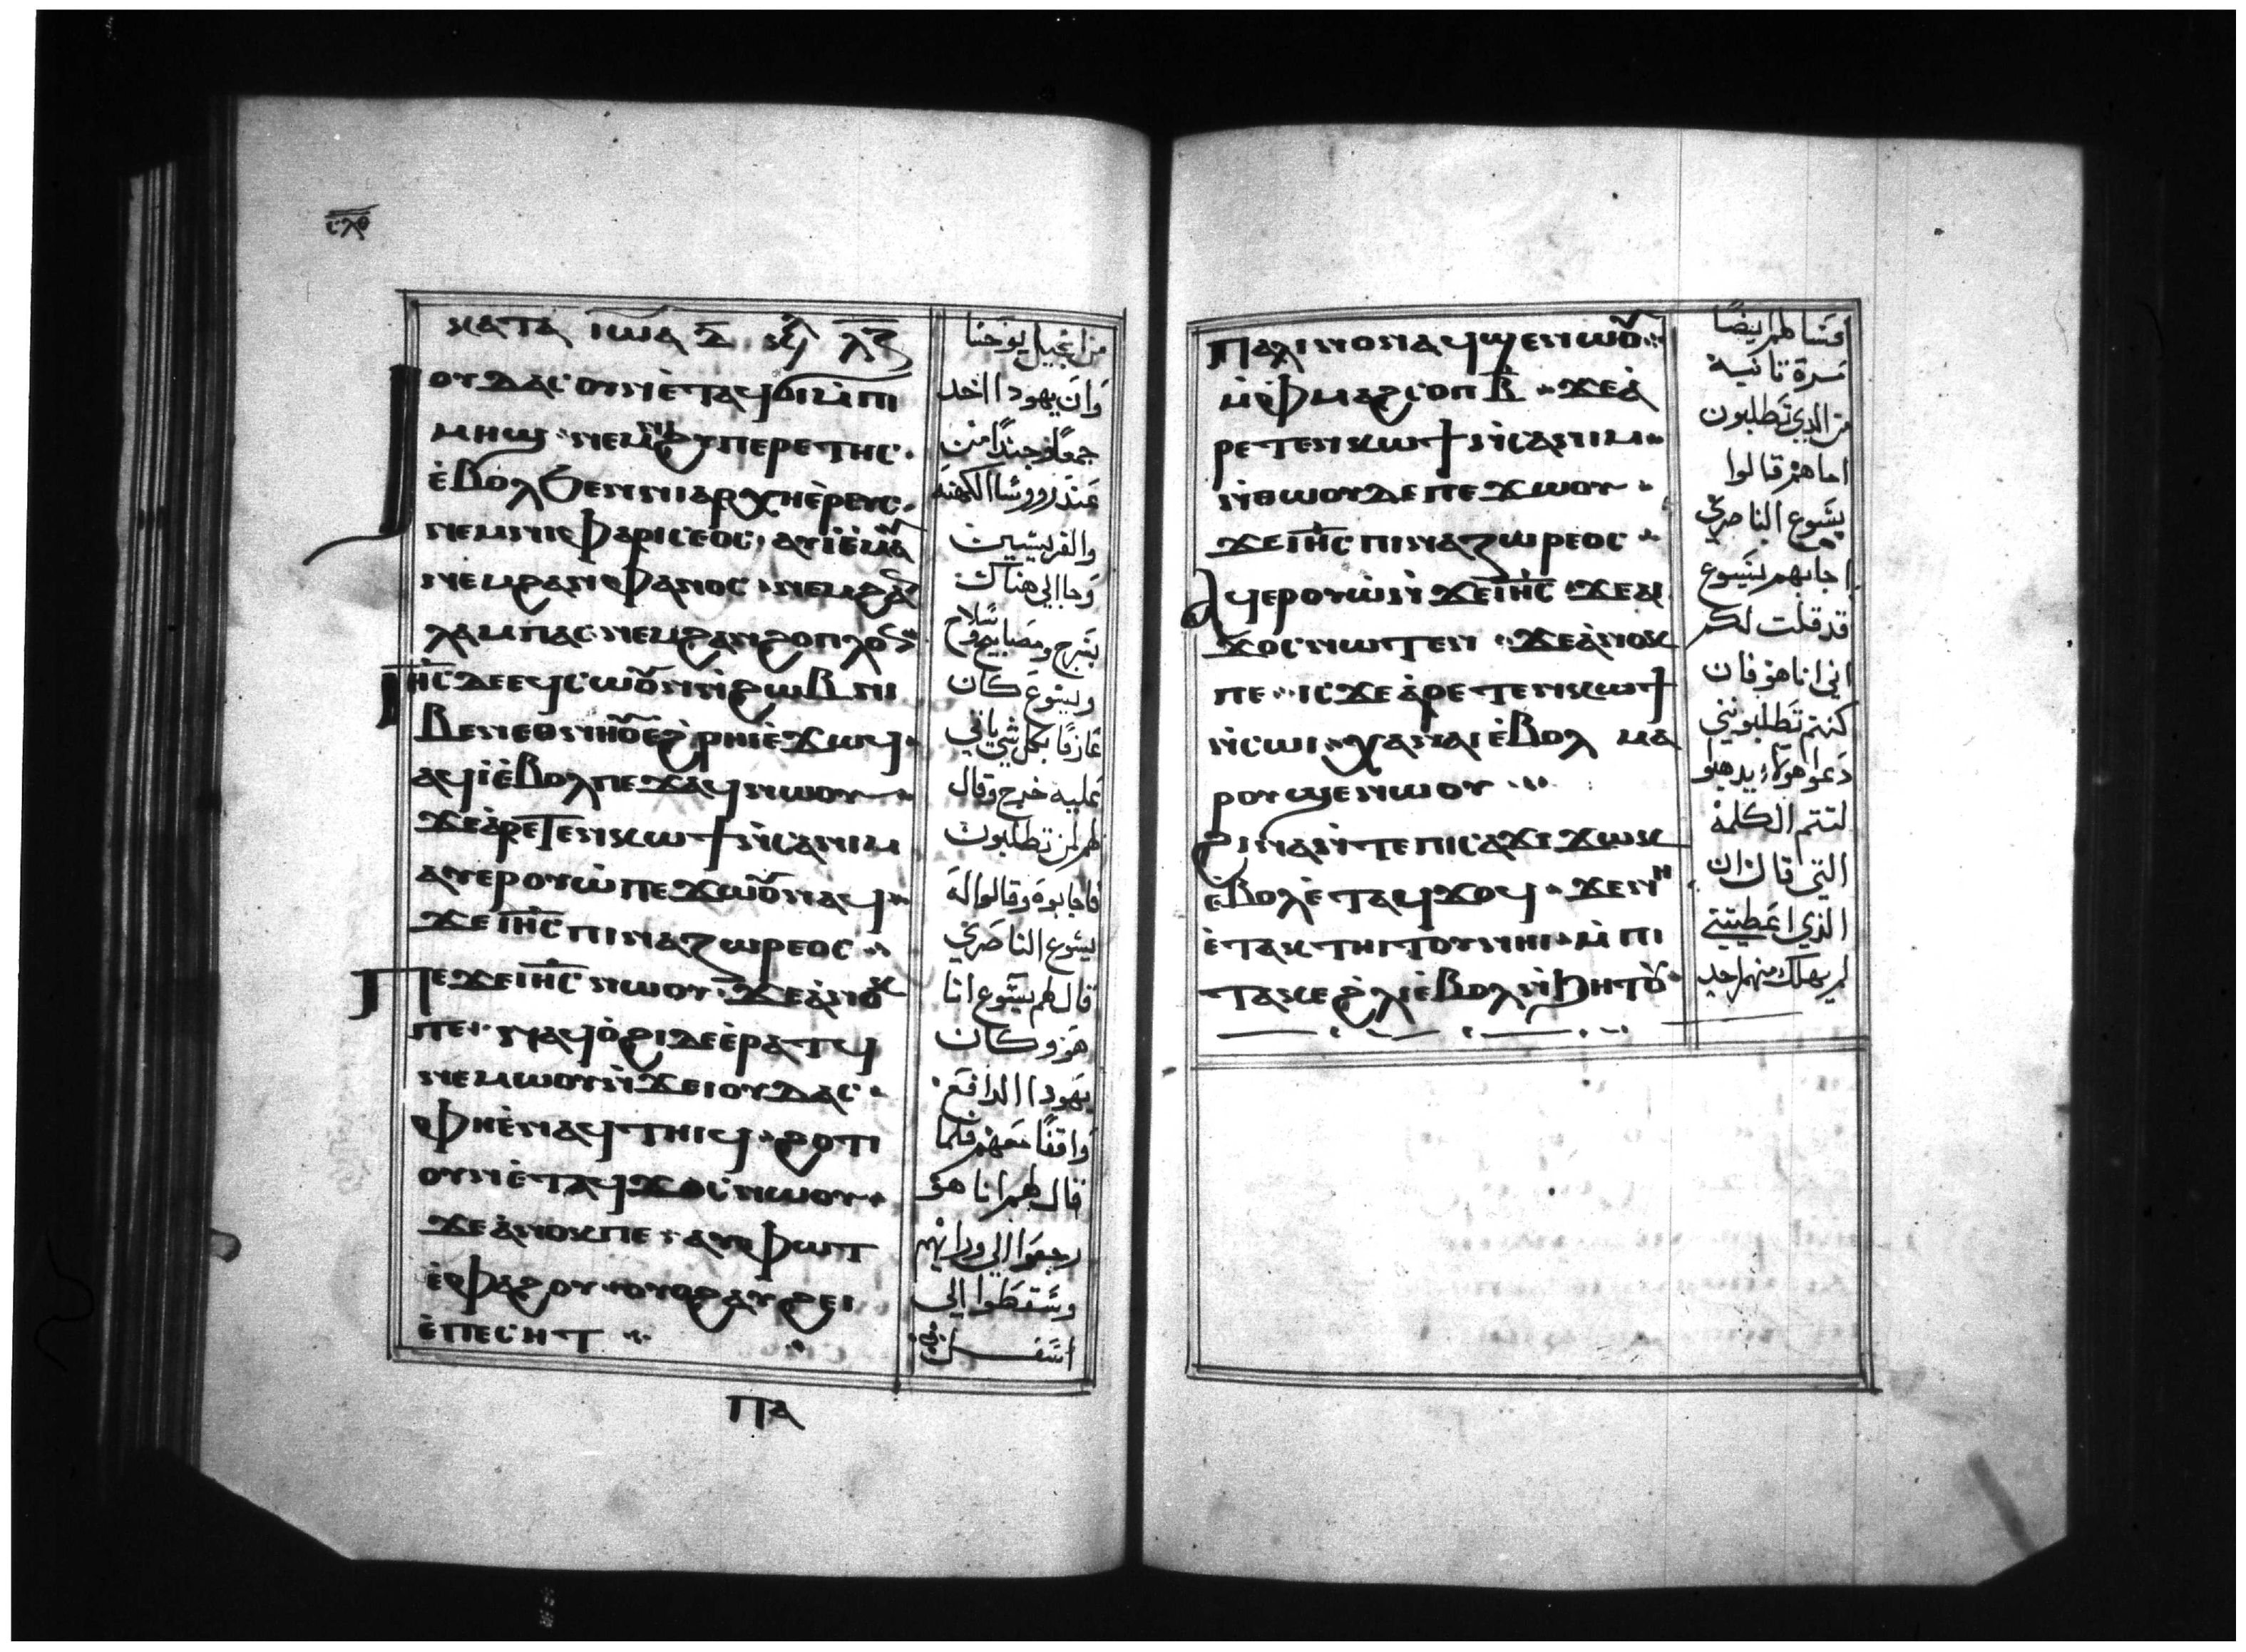 ⲥⲗⲑ
ⲕⲁⲧⲁ ⲓⲱⲁ ⲇ ⲕⲉⲫ ⲗⲍ
ⲓⲟⲩⲇⲁⲥ ⲟⲩⲛ ⲉ̀ⲧⲁϥϭⲓ ⲙ̀ⲡⲓ
ⲙⲏϣ ⲛⲉⲙ ϩⲁⲛϩⲩⲡⲉⲣⲉⲧⲏⲥ
ⲉ̀ⲃⲟⲗ ϧⲉⲛ ⲛⲓⲁⲣⲭⲏⲉ̀ⲣⲉⲩⲥ
ⲛⲉⲙ ⲛⲓⲫⲁⲣⲓⲥⲉⲟⲥ ⲁⲩⲓ̀ ⲉ̀ⲙⲁⲩ
ⲛⲉⲙ ϩⲁⲛⲫⲁⲛⲟⲥ ⲛⲉⲙ ϩⲁⲛ
ⲗⲁⲙⲡⲁⲥ ⲛⲉⲙ ϩⲁⲛϩⲟⲡⲗⲟⲛ
ⲓⲏⲥ ⲇⲉ ⲉϥⲥⲱⲟⲩⲛ ⲛ̀ϩⲱⲃ ⲛⲓ
ⲃⲉⲛ ⲉⲑⲛⲏⲟⲩ ⲉϩ̀ⲣⲏⲓ ⲉ̀ϫⲱϥ
ⲁϥⲓ̀ ⲉ̀ⲃⲟⲗ ⲡⲉϫⲁϥ ⲛⲱⲟⲩ
ϫⲉ ⲁ̀ⲣⲉⲧⲉⲛⲕⲱϯ ⲛ̀ⲥⲁ ⲛⲓⲙ
ⲁⲩⲉⲣⲟⲩⲱ̀ ⲡⲉϫⲱⲟⲩ ⲛⲁϥ
ϫⲉ ⲓⲏⲥ ⲡⲓⲛⲁⲍⲱⲣⲉⲟⲥ
ⲡⲉϫⲉ ⲓⲏⲥ ⲛⲱⲟⲩ ϫⲉ ⲁ̀ⲛⲟⲕ
ⲡⲉ ⲛⲁϥⲟ̀ϩⲓ ⲇⲉ ⲉ̀ⲣⲁⲧϥ
ⲛⲉⲙⲱⲟⲩ ⲛ̀ϫⲉ ⲓⲟⲩⲇⲁⲥ
ⲫⲏ ⲉ̀ⲛⲁϥⲧⲏⲓϥ ϩⲟⲧⲓ
ⲟⲩⲛ ⲉ̀ⲧⲁϥϫⲟⲥ ⲛⲱⲟⲩ
ϫⲉ ⲁ̀ⲛⲟⲕ ⲡⲉ ⲁⲩⲫⲱⲧ
ⲉ̀ⲫⲁϩⲟⲩ ⲟⲩⲟϩ ⲁⲩϩⲉⲓ
ⲉ̀ⲡⲉⲥⲏⲧ
ⲡⲁ
من انجيل يوحنا
وان يهودا اخد
جمعًا وجندًا من
عند رووسا الكهنة
والفريسيين
وجا الي هناك
بسرج ومصابيح وسلاح
ويسوع كان
عارفًا بكل شي ياتي
عليه خرج وقال
لهم لمن تطلبون
فاجابوه وقالوا له
يسوع الناصري
قال لهم يسوع انا
هو وكان
يهودا الدافع
واقفًا معهم فلما
قال لهم انا هو
رجعوا الي ورايهم
وسقطوا الي
اسفل
ⲡⲁⲗⲓⲛ ⲟⲛ ⲁϥϣⲉⲛⲱⲟⲩ
ⲙ̀ⲫⲙⲁϩⲥⲟⲡ ⲃ̅ ϫⲉ ⲁ̀
ⲣⲉⲧⲉⲛⲕⲱϯ ⲛ̀ⲥⲁ ⲛⲓⲙ
ⲛ̀ⲑⲱⲟⲩ ⲇⲉ ⲡⲉϫⲱⲟⲩ
ϫⲉ ⲓⲏⲥ ⲡⲓⲛⲁⲍⲱⲣⲉⲟⲥ
ⲁϥⲉⲣⲟⲩⲱ̀ ⲛ̀ϫⲉ ⲓⲏⲥ ϫⲉ ⲁⲓ
ϫⲟⲥ ⲛⲱⲧⲉⲛ ϫⲉ ⲁ̀ⲛⲟⲕ
ⲡⲉ ⲓⲥϫⲉ ⲁ̀ⲣⲉⲧⲉⲛⲕⲱϯ
ⲛ̀ⲥⲱⲓ ⲭⲁ ⲛⲁⲓ ⲉ̀ⲃⲟⲗ ⲙⲁ
ⲣⲟⲩϣⲉⲛⲱⲟⲩ
ϩⲓⲛⲁ ⲛ̀ⲧⲉ ⲡⲓⲥⲁϫⲓ ϫⲱⲕ
ⲉⲃⲟⲗ ⲉ̀ⲧⲁϥϫⲟϥ ϫⲉ ⲛⲏ
ⲉ̀ⲧⲁⲕⲧⲏⲓⲧⲟⲩ ⲛⲏⲓ ⲙ̀ⲡⲓ
ⲧⲁⲕⲉ ϩ̀ⲗⲓ ⲉ̀ⲃⲟⲗ ⲛ̀ϧⲏⲧⲟⲩ
مرة ثانية
من الدي تطلبون
اما هم قالوا
يسوع الناصري
اجابهم يسوع
قد قلت لكم
اني انا هو فان
كنتم تطلبونني
دعوا هولاء يدهبوا
لتتم الكلمة
التي قال ان
الذي اعطيتني
لم يهلك منهم احد